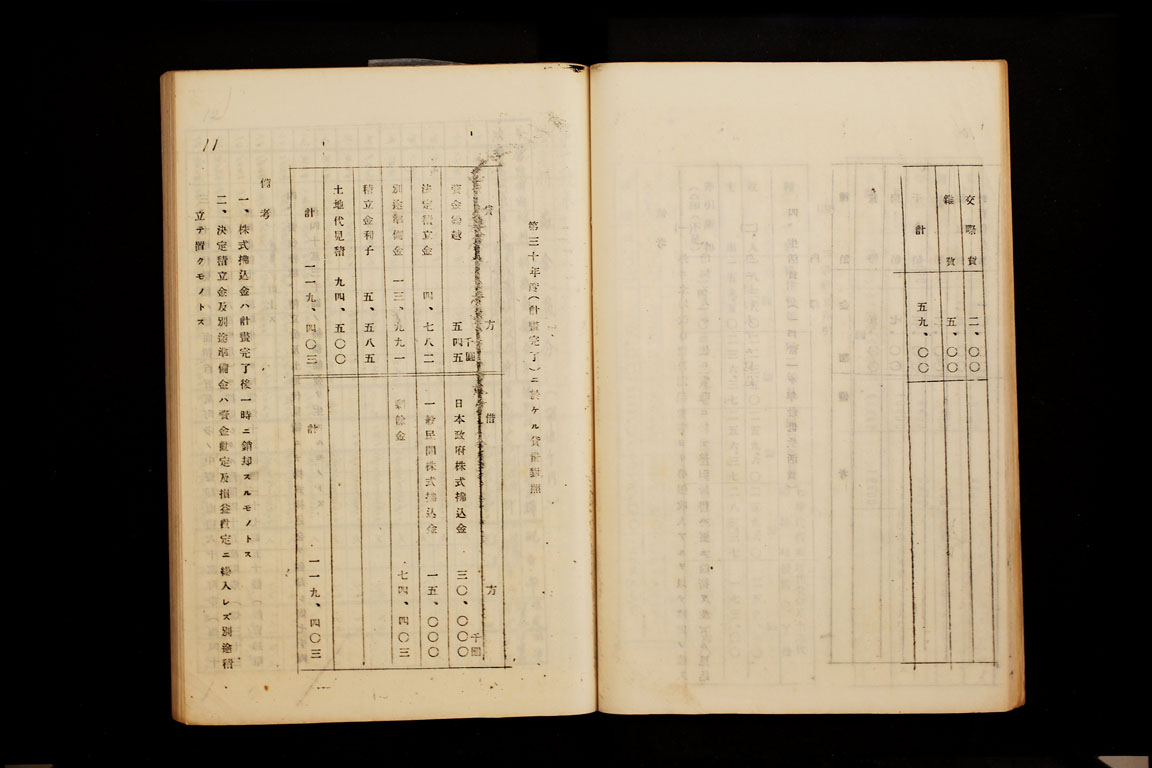 交際費 二、〇〇
雑費 五、〇〇
計 五九、〇〇
第三十年度(計畫完了)ニ於ケル貸借對照
貸方
借方
千圓
千圓
資金繰越 五四五
日本政府株式拂込金 三〇、〇〇〇
決定積立金 四、七八二
一般民間株式拂込金 一五、〇〇〇
別途準備金 一三、九九一
剰餘金 七四、四〇三
積立金利子 五、五八五
土地代見積 九四、五〇〇
計 一一九、四〇三
計 一一九、四〇三
備考
一、株式拂込金ハ計畫完了後一時ニ銷却スルモノトス
二、決定積立金及別途準備金ハ資金勘定及損益勘定ニ繰入レズ別途積
立テ置クモノトス
11
12